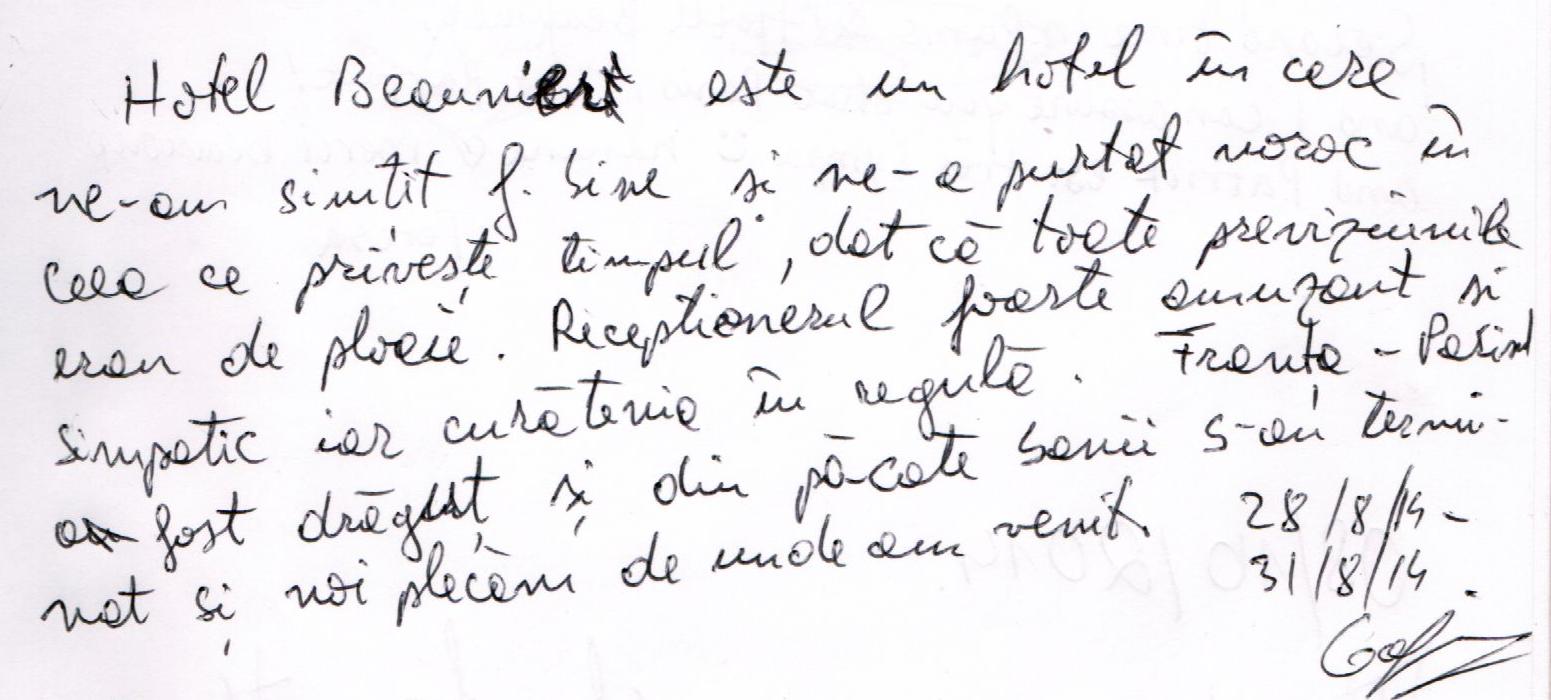 Hotel este un hotel în care
ne-am simtit f. bine si ne-a purtat noroc în
ceea ce privește timpul, dat că toate previziunile
erau de ploaie. Recepționerul foarte amuzant si
simpatic iar curătenia în regulă. Franța - Parisul
a fost drăguț și din păcate banii s-au termi-
nat și noi plecăm de unde am venit. 28/8/14 -
31/8/14.